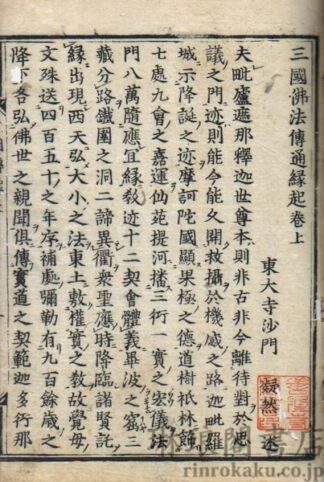 三國佛法傳通緣起卷上
東大寺沙門 凝然 述
夫毗盧遮那釋迦世尊本則非古非今離待對於思
議之門迹則能今能久開救攝於機感之路迦毗羅
城示降誕之迹摩訶陀國顯果極之德道樹祇林飾
七處九會之嘉運仙苑提河播三衍一實之宏儀法
門八萬隨應宜緣教迹十二契會體義畢波之窟三
藏分路鐵圍之洞二諦異衢衆聖應時降臨諸賢託
緣出現西天弘大小之法東土敷權實之教故覺母
文殊送四百五十之年序補處彌勒有九百餘歲之
降下各弘佛世之親聞俱傳實道之契範迦多衍那
琳琅閣書店
rinrokaku.co.jp